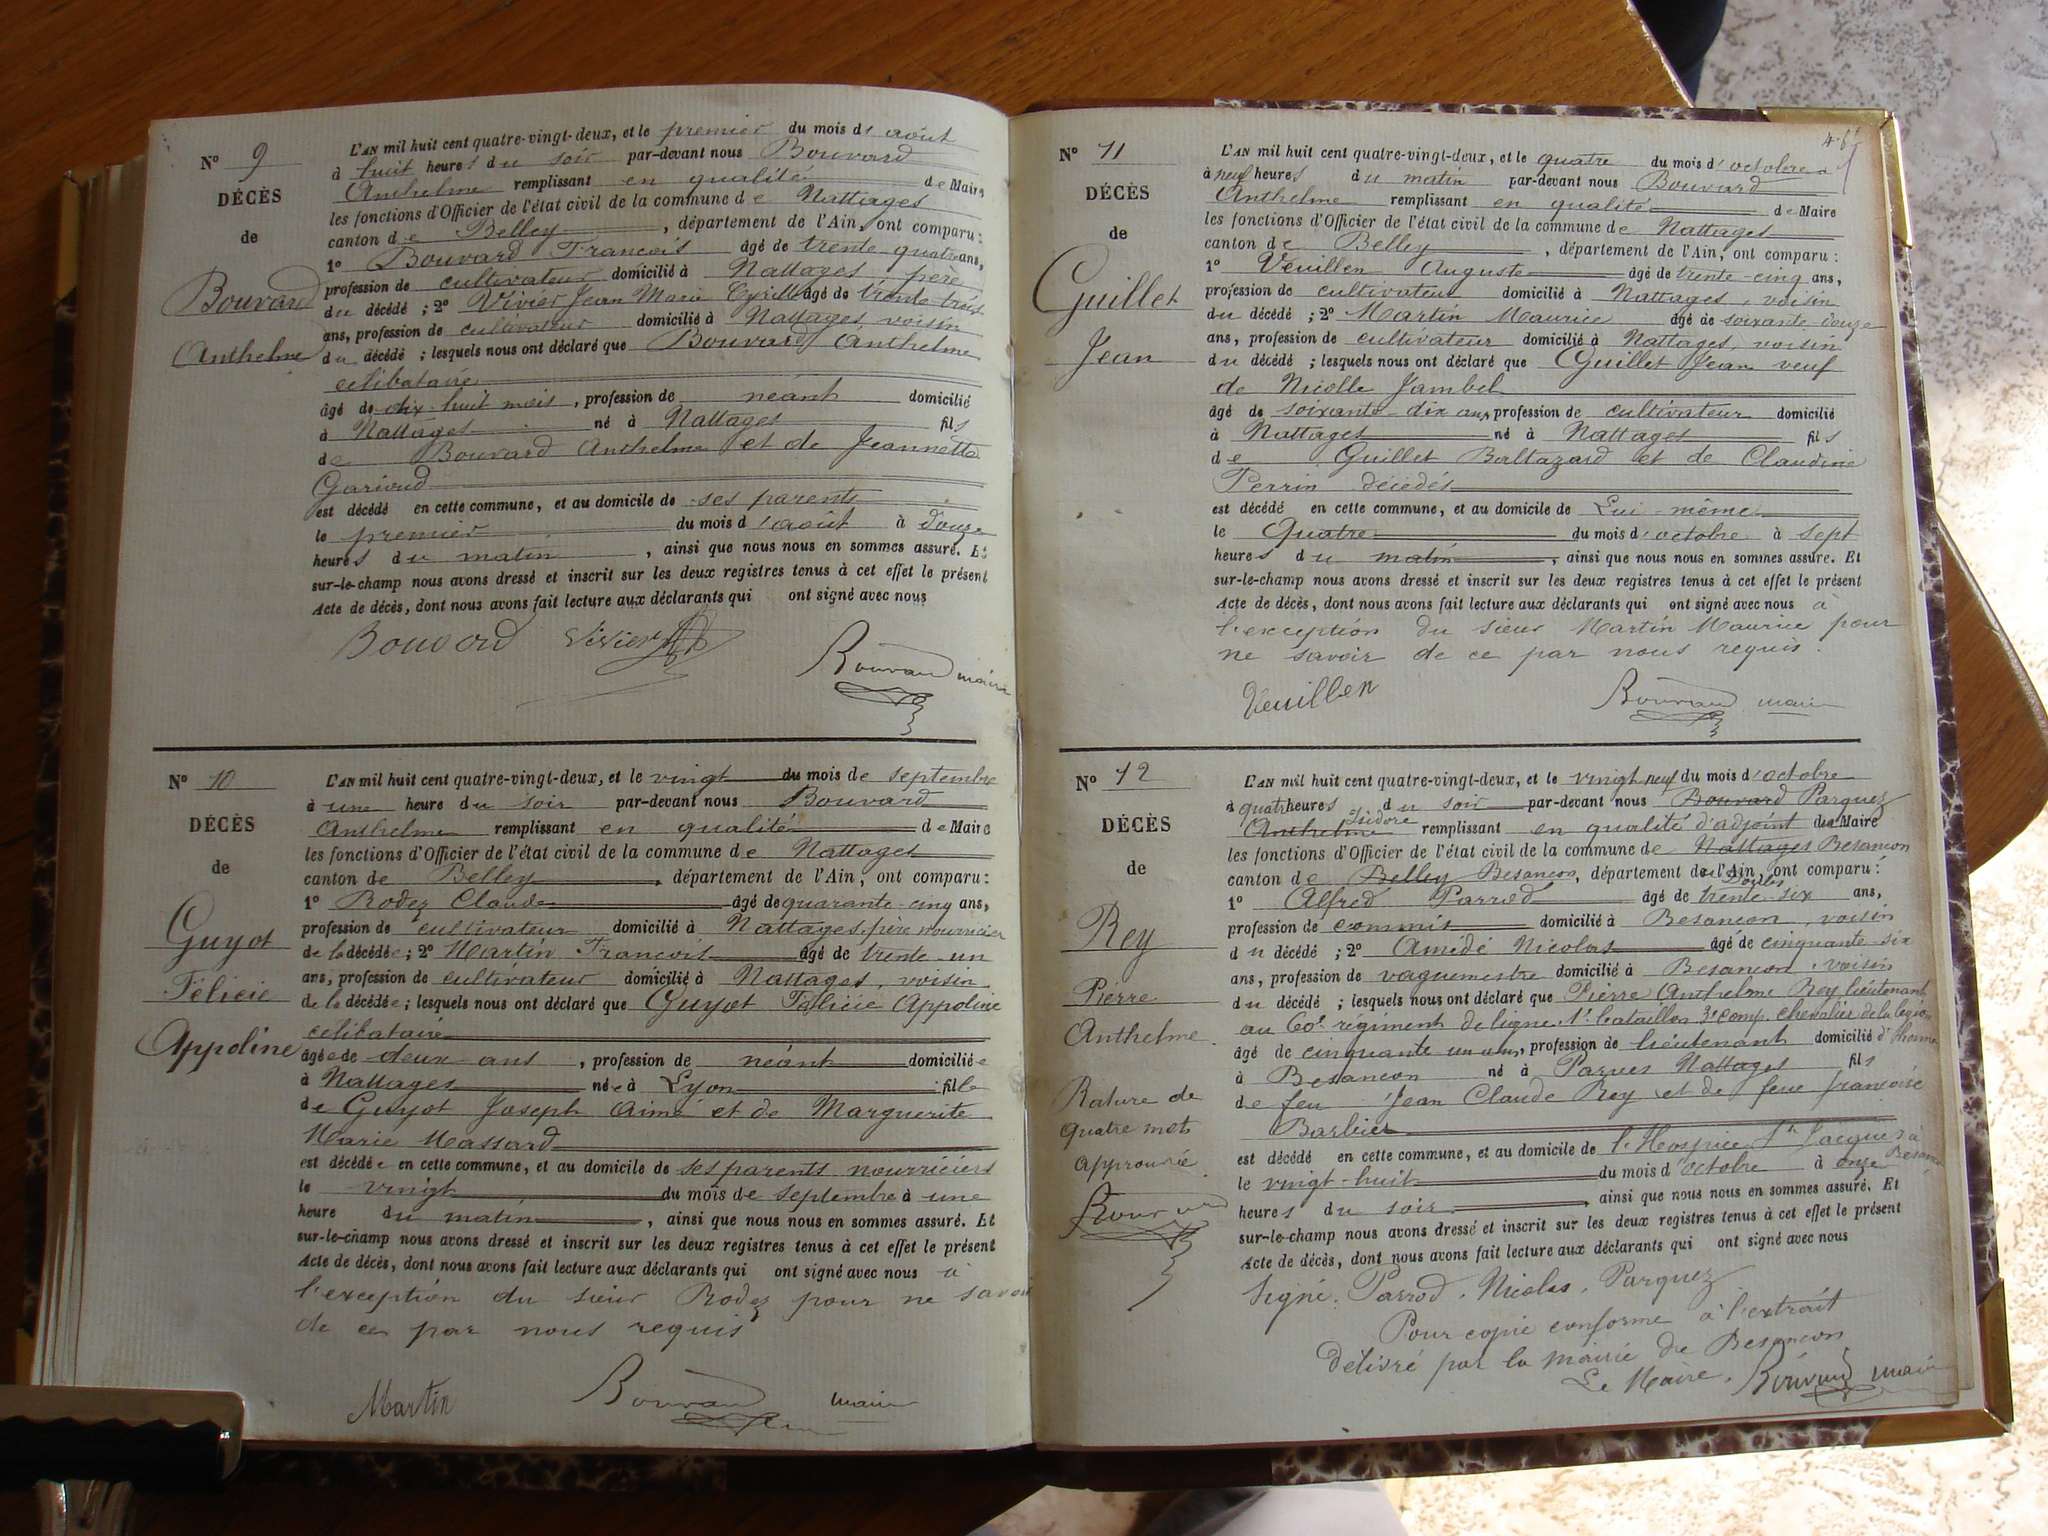 N° 9
DÉCÈS
de
Bouvard
Anthelme
L'AN mil huit cent quatre-vingt-deux, et le premier du mois d'août
à huit heures du soir par-devant nous Bouvard
Anthelme remplissant en qualité de Maire
les fonctions d'Officier de l'état civil de la commune de Nattages
canton de Belley, département de l'Ain, ont comparu:
1° Bouvard François âgé de trente quatre ans,
profession de cultivateur domicilié à Nattages, père
du décédé ; 2° Vivier Jean Marie Cyrille âgé de trente trois
ans, profession de cultivateur domicilié à Nattages voisin
du décédé ; lesquels nous ont déclaré que Bouvard Anthelme
célibataire
âgé de dix-huit mois, profession de néant domicilié
à Nattages né à Nattages fils
de Bouvard Anthelme et de Jeannette
Garioud
est décédé en cette commune, et au domicile de ses parents
le premier du mois d'août à douze
heures du matin, ainsi que nous nous en sommes assuré. Et
sur-le-champ nous avons dressé et inscrit sur les deux registres tenus à cet effet le présent
Acte de décès, dont nous avons fait lecture aux déclarants qui ont signé avec nous
Bouvard Vivier
Bouvard maire
N° 10
DÉCÈS
de
Guyot
Félicie
Appoline
L'AN mil huit cent quatre-vingt-deux, et le vingt du mois de septembre
à une heure du soir par-devant nous Bouvard
Anthelme remplissant en qualité de Maire
les fonctions d'Officier de l'état civil de la commune de Nattages
canton de Belley, département de l'Ain, ont comparu:
1° Rodez Claude âgé de quarante-cinq ans,
profession de cultivateur domicilié à Nattages, père nourricier
de la décédée; 2° Martin François âgé de trente-un
ans, profession de cultivateur domicilié à Nattages, voisin
de la décédée; lesquels nous ont déclaré que Guyot Félicie Appoline
célibataire
âgée de deux ans, profession de néant domiciliée
à Nattages née à Lyon fille
de Guyot Joseph Aimé et de Marguerite
Marie Massard
est décédée en cette commune, et au domicile de ses parents nourriciers
le vingt du mois de septembre à une
heure du matin, ainsi que nous nous en sommes assuré. Et
sur-le-champ nous avons dressé et inscrit sur les deux registres tenus à cet effet le présent
Acte de décès, dont nous avons fait lecture aux déclarants qui ont signé avec nous à
l'exception du sieur Rodez pour ne savoir
de ce par nous requis
Martin Bouvard maire
N° 11
DÉCÈS
de
Guillet
Jean
L'AN mil huit cent quatre-vingt-deux, et le quatre du mois d'octobre
à neuf heures du matin par-devant nous Bouvard
Anthelme remplissant en qualité de Maire
les fonctions d'Officier de l'état civil de la commune de Nattages
canton de Belley, département de l'Ain, ont comparu:
1° Veuillen Auguste âgé de trente-cinq ans,
profession de cultivateur domicilié à Nattages, voisin
du décédé ; 2° Martin Maurice âgé de soixante-douze
ans, profession de cultivateur domicilié à Nattages, voisin
du décédé ; lesquels nous ont déclaré que Guillet Jean veuf
de Nicolle Jambel
âgé de soixante-dix ans, profession de cultivateur domicilié
à Nattages né à Nattages fils
de Guillet Baltazard et de Claudine
Perrin décédés
est décédé en cette commune, et au domicile de Lui-même
le Quatre du mois d'octobre à sept
heures du matin, ainsi que nous nous en sommes assuré. Et
sur-le-champ nous avons dressé et inscrit sur les deux registres tenus à cet effet le présent
Acte de décès, dont nous avons fait lecture aux déclarants qui ont signé avec nous à
l'exception du sieur Martin Maurice pour
ne savoir de ce par nous requis.
Veuillen Bouvard maire
N° 12
DÉCÈS
de
Rey
Pierre
Anthelme
Rature de
quatre mots
approuvée
Bouvard
L'AN mil huit cent quatre-vingt-deux, et le vingt neuf du mois d'octobre
à quatre heures du soir par-devant nous Bouvard Parguez
Anthelme Isidore remplissant en qualité d'adjoint de Maire
les fonctions d'Officier de l'état civil de la commune de Nattages Besançon
canton de Belley Besançon, département de l'Ain, du Doubs ont comparu:
1° Alfred Parrod âgé de trente-six ans,
profession de commis domicilié à Besancon, voisin
du décédé ; 2° Amédé Nicolas âgé de cinquante-six
ans, profession de vaguemestre domicilié à Besancon, voisin
du décédé ; lesquels nous ont déclaré que Pierre Anthelme Rey lieutenant
au 60e régiment de ligne, 1r bataillon 3e comp. chevalier de la légion
d'honneur
âgé de cinquante un ans, profession de lieutenant domicilié
à Besancon né à Parves Nattages fils
de feu Jean Claude Rey et de feue françoise
Barbier
est décédé en cette commune, et au domicile de l'Hospice St Jacques à Besancon
le vingt-huit du mois d'octobre à onze
heures du soir, ainsi que nous nous en sommes assuré. Et
sur-le-champ nous avons dressé et inscrit sur les deux registres tenus à cet effet le présent
Acte de décès, dont nous avons fait lecture aux déclarants qui ont signé avec nous
Signé. Parrod, Nicolas, Parguez
Pour copie conforme à l'extrait
délivré par la mairie de Besancon
Le Maire, Bouvard maire